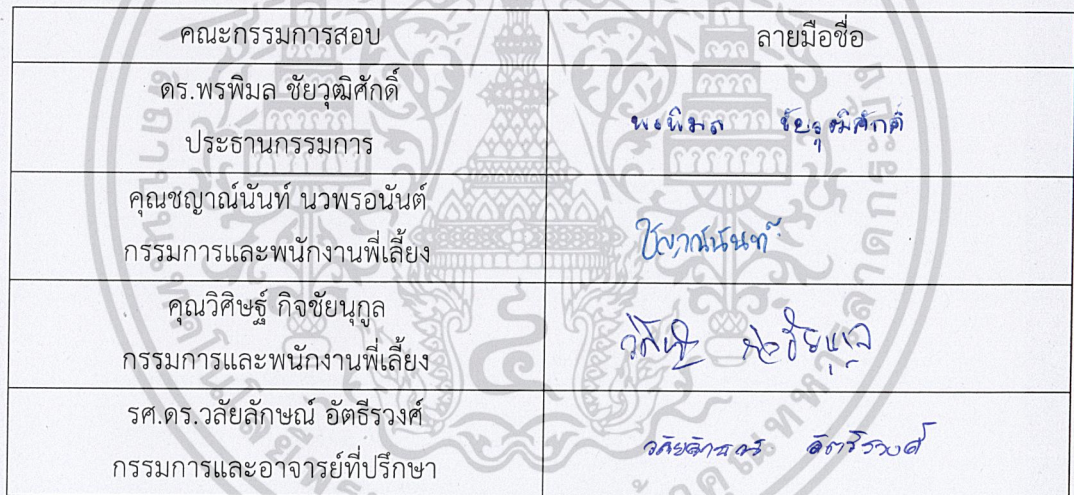 คณะกรรมการสอบ ลายมือชื่อ
ดร.พรพิมล ชัยวุฒิศักดิ์
ประธานกรรมการ
พรพิมล ชัยวุฒิศักดิ์
คุณชญาณ์นันท์ นวพรอนันต์
กรรมการและพนักงานพี่เลี้ยง
ชญาณ์นันท์
คุณวิศิษฐ์ กิจชัยนุกูล
กรรมการและพนักงานพี่เลี้ยง
วิศิษฐ์ กิจชัยนุกูล
รศ.ดร.วลัยลักษณ์ อัตธีรวงศ์
กรรมการและอาจารย์ที่ปรึกษา
วลัยลักษณ์ อัตธีรวงศ์